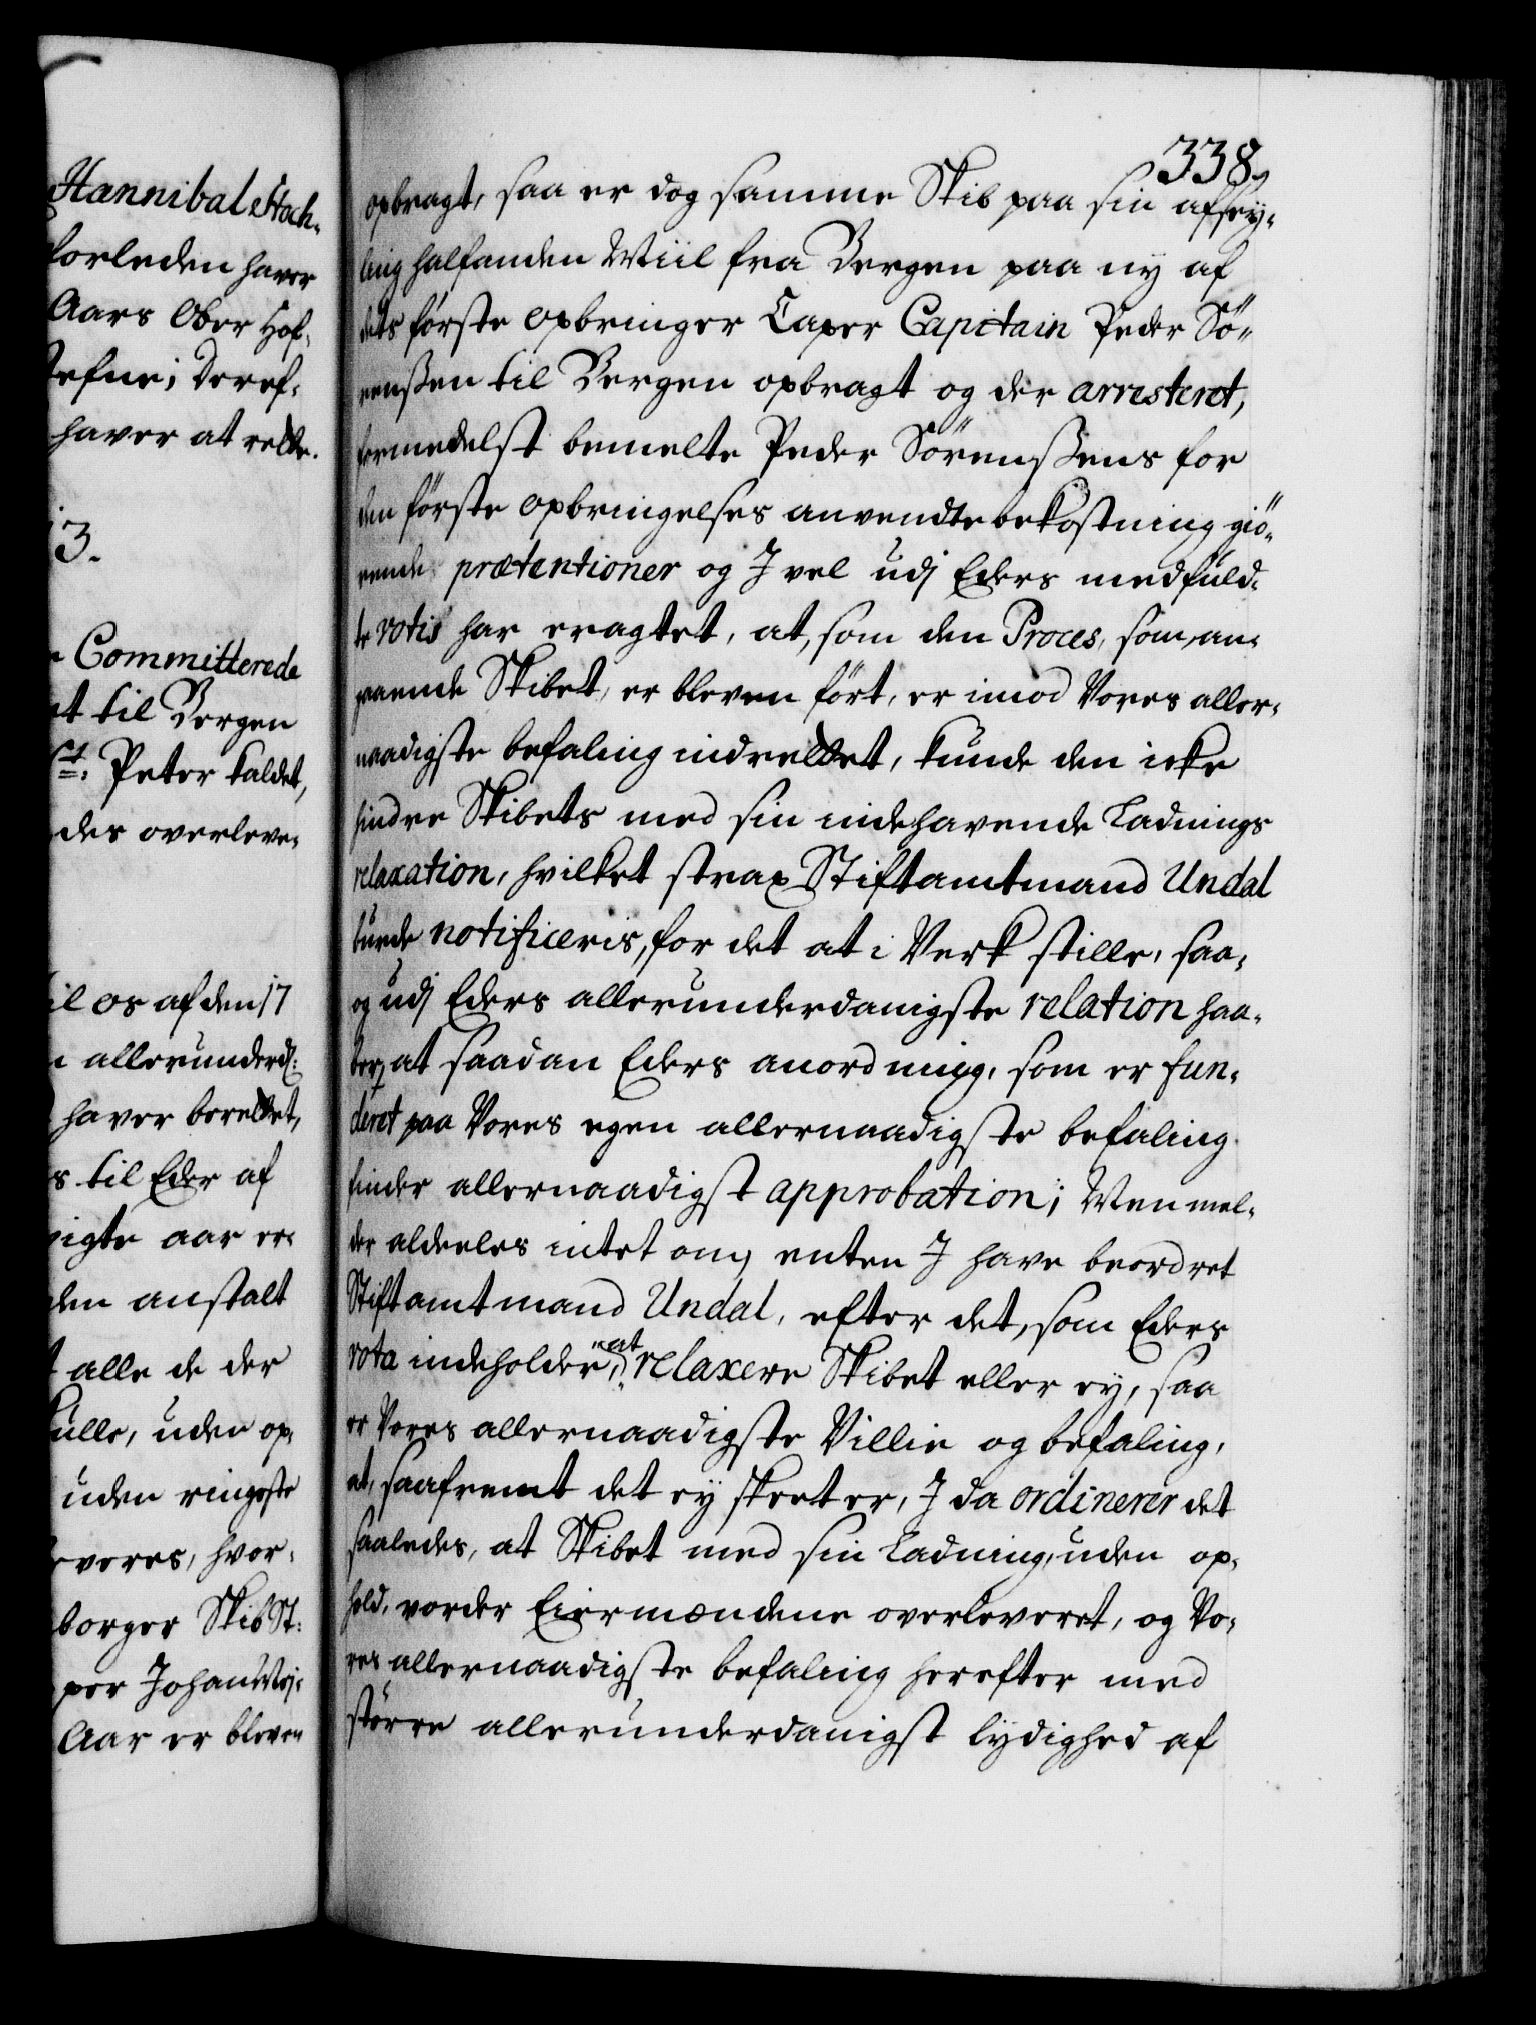 Hannibal Stock-
forleden haver
Aars Ober Hof-
stefne; Deref-
haver at rette.
13.
Committerede
til Bergen
St: Peter kaldet,
des overleve-
til os af den 17
allerunderd:
haver berettet,
til Eder af
aar er-
den anstalt
alle de der
uden op-
uden ringeste
veres, hvor-
borger Skib St:
per Johan
Aar er bleven
338.
opbragt, saa er dog samme Skib paa sin afsey-
ling halfanden Miil fra Bergen paa ny af
dets förste opbringer Caper Capitain Peder Sö-
rensßen til Bergen opbragt og der arresteret,
formedelst bemelte Peder Sörensßens for
den förste opbringelses anvendte bekostning giö-
rende prætentioner og I vel udj Eders medfuld-
te votis har eragtet, at, som den Proces, som an-
gaaende Skibet, er bleven fört, er imod Vores aller-
naadigste befaling indrettet, kunde den icke
hindre Skibets med sin indehavende Ladnings
relaxation, hvilket strax Stiftamtmand Undal
burde notificeris, for det at i Verk stille, saa-
og udj Eders allerunderdanigste relation haa-
ber, at saadan Eders anordning, som er fun-
deret paa Vores egen allernaadigste befaling
finder allernaadigst approbation; Men mel-
der aldeeles intet om, enten I have beordret
Stiftamtmand Undal, efter det, som Eders
vota indeholder, at relaxere Skibet eller ey, saa
er Vores allernaadigste Villie og befaling,
at, saafremt det ey skeet er, I da ordinerer det
saaledes, at Skibet med sin Ladning, uden op-
hold, vorder Eiermændene overleveret, og Vo-
res allernaadigste befaling herefter med
större allerunderdanigst lydighed af